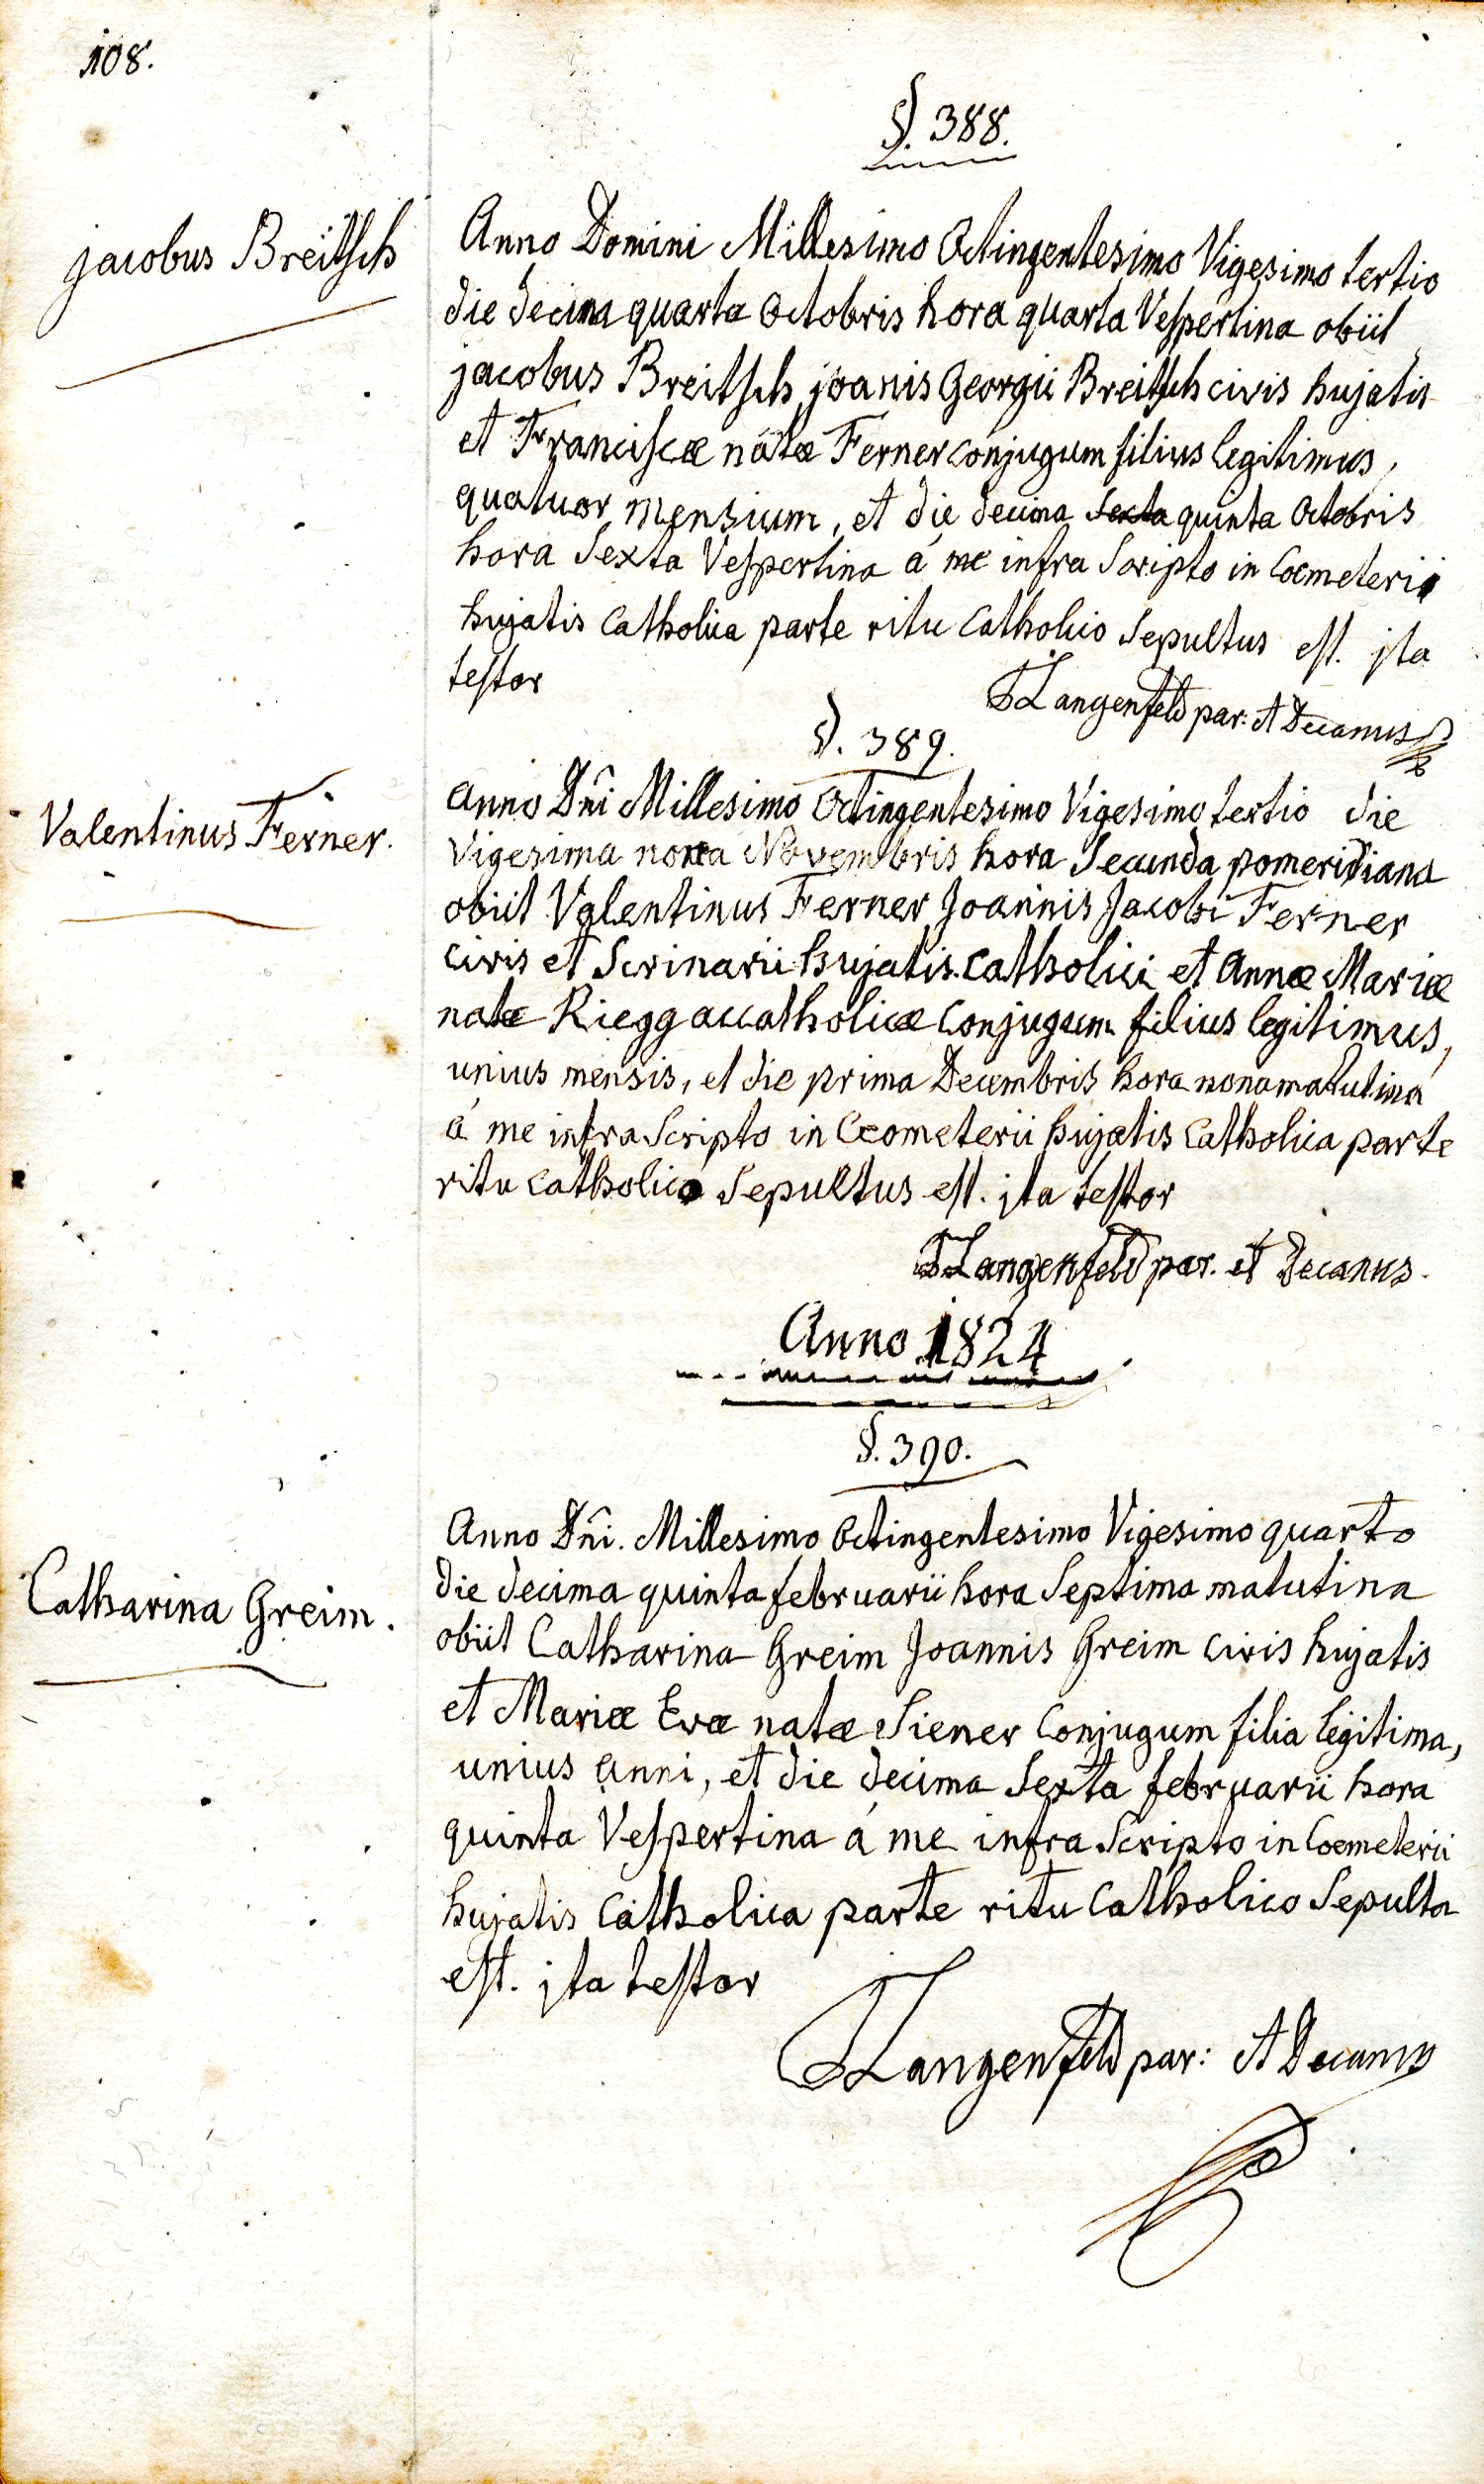 108.
§. 388.
jacobus Breitsch
Anno Domini Millesimo Octingentesimo Vigesimo tertio
die decima quarta Octobris hora quarta Vespertina obiit
jacobus Breitsch joanis Georgii Breitsch civis hujatis
et Franciscæ natæ Ferner conjugum filius legitimus,
quatuor mensium, et die decima Sexta quinta Octobris
hora Sexta Vespertina á me infra Scripto in Coemeterii
hujatis Catholica parte ritu Catholico Sepultus est. jta
testor
TLangenfeld par: et Decanus
§. 389.
Valentinus Ferner.
Anno Dni Millesimo Octingentesimo Vigesimo tertio die
Vigesima nona Novembris hora Secunda pomeridiana
obiit Valentinus Ferner Joannis Jacobi Ferner
civis et Scrinarii hujatis Catholici et Annæ Mariæ
natæ Riegg accatholicæ Conjugum filius legitimus,
unius mensis, et die prima Decembris hora nona matutina
á me infra Scripto in Coemeterii hujatis Catholica parte
ritu Catholico Sepultus est. jta testor
TLangenfeld par. et Decanus.
Anno 1824
§. 390.
Catharina Greim.
Anno Dni. Millesimo Octingentesimo Vigesimo quarto
die decima quinta februarii hora Septima matutina
obiit Catharina Greim Joannis Greim civis hujatis
et Mariæ Evæ natæ Siener Conjugum filia legitima,
unius anni, et die decima Sexta februarii hora
quinta Vespertina á me infra Scripto in Coemeterii
hujatis Catholica parte ritu Catholico Sepulta
est. jta testor
TLangenfeld par: et Decanus